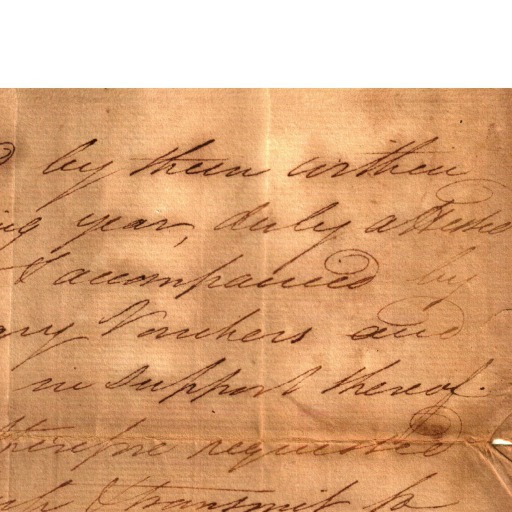 by them within
year, duly attested
& accompanied by
Vouchers and
in support thereof.
therefore requested
& transmit to